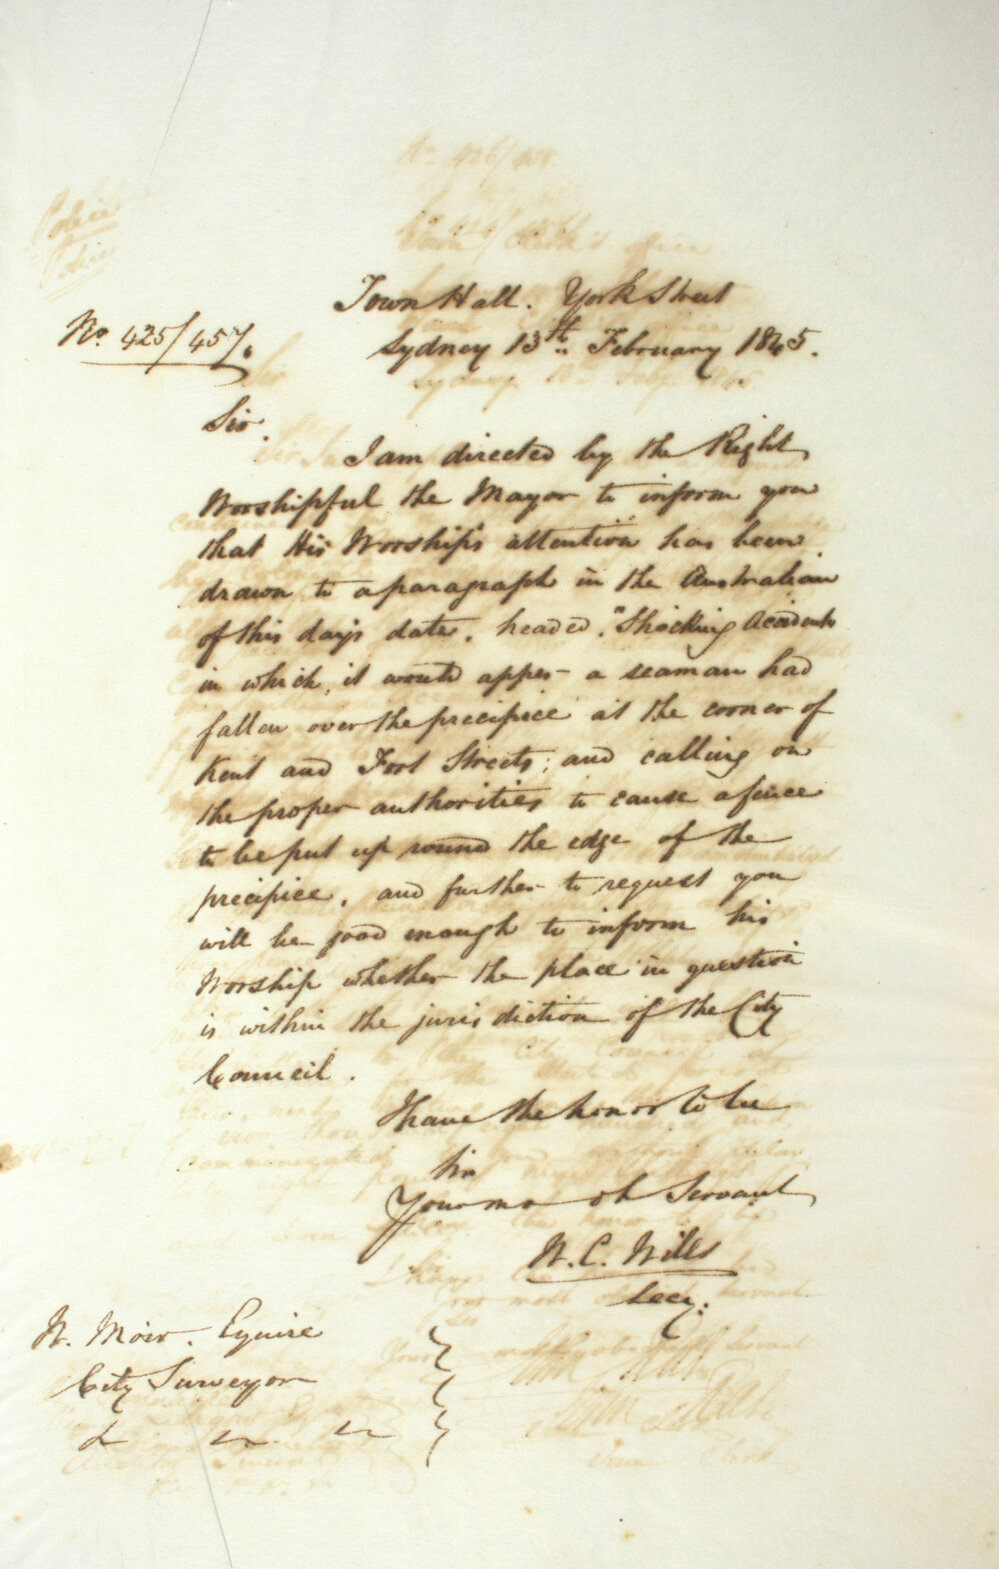 Town Hall. York Street
No. 425/457.
Sydney 13th February 1845.
Sir.
I am directed by the Right
Worshipful the Mayor to inform you
that His Worship's attention has been
drawn to a paragraph in the Australian
of this day's date, headed, "Shocking Accident"
in which it would apper a seaman had
fallen over the precipice at the corner of
Kent and Fort Streets; and calling on
the proper authorities to cause a fence
to be put up round the edge of the
precipice, and further to request you
will be good enough to inform his
Worship whether the place in question
is within the jurisdiction of the City
Council.
I have the honor to be
Sir
Your mo ob Servant
W. C. Wills
Secy.
W. Moir. Equire
City Surveyor